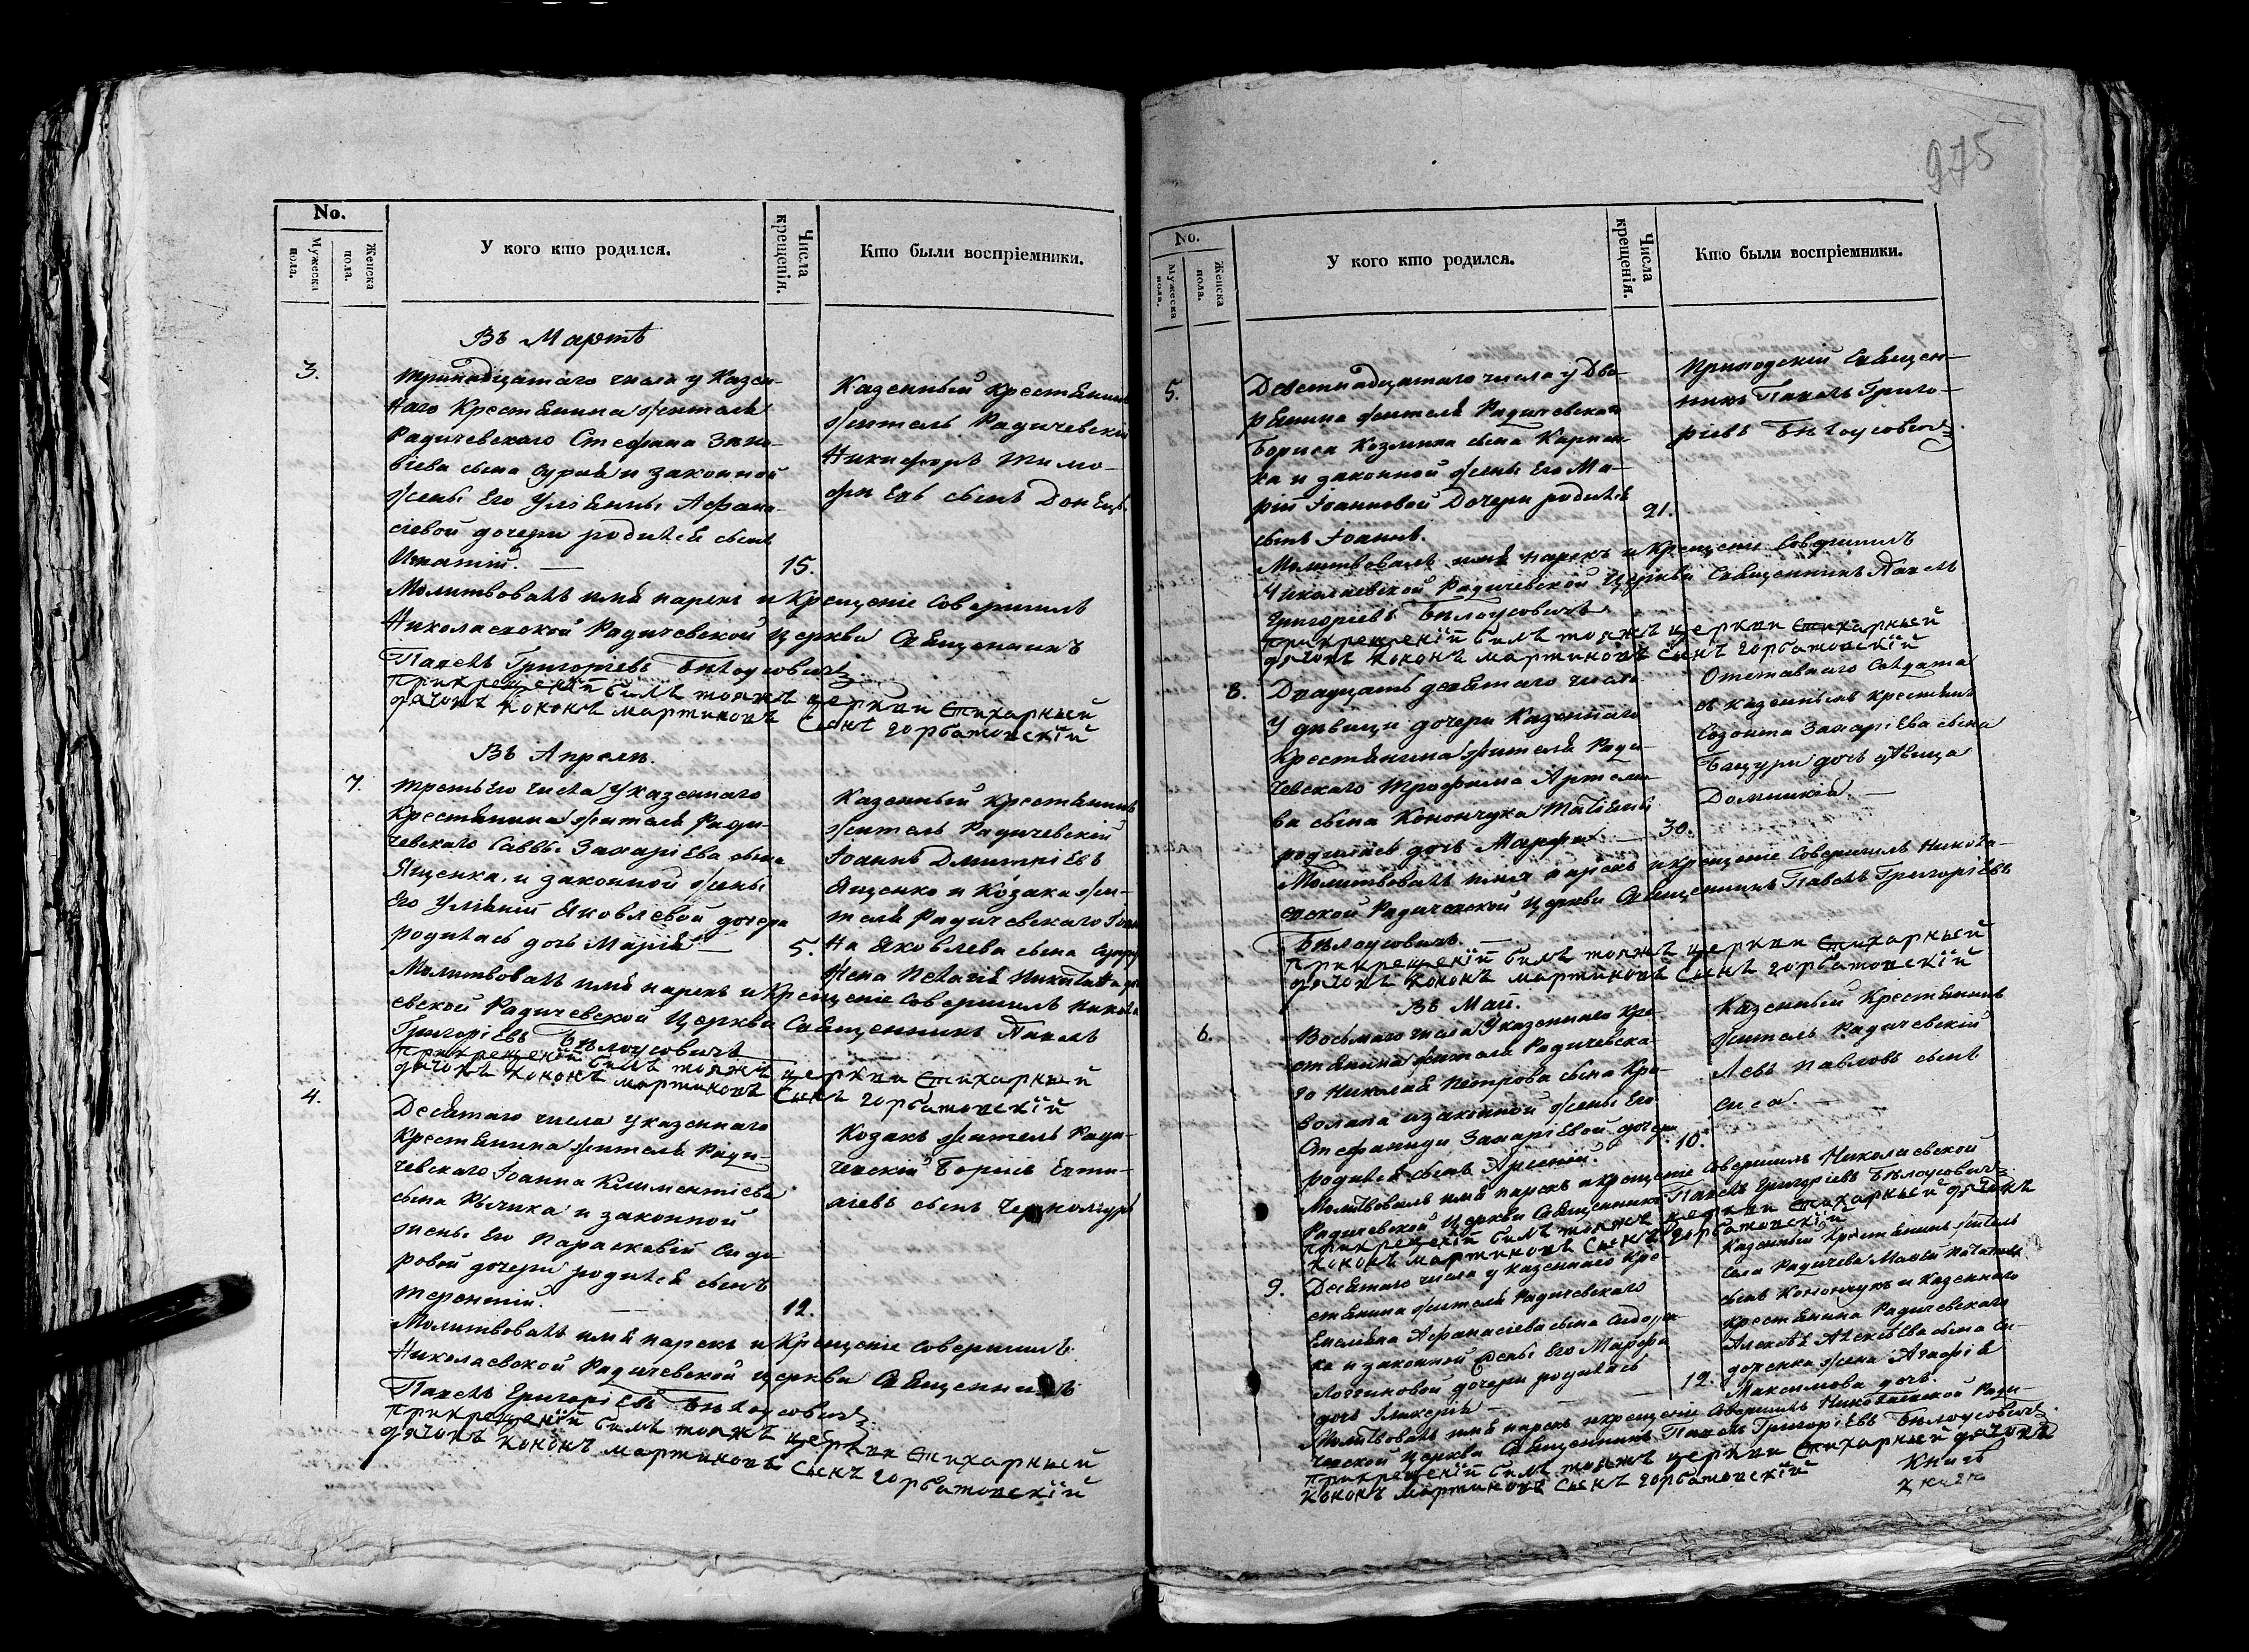 975
No.
Мужеска пола.
Женска пола.
У кого кто родился.
Числа крещенія.
Кто были воспріемники.
Въ Мартѣ
3.
тринадцатаго числа у Казен-
наго Крестянина жителя
Радичевскаго Стефана
сына и законной
жены Его Уліянны Афана-
сіевой дочери родился сынъ
Игнатій.
15.
Казенный Крестянинъ
житель Радичевскій
Никифоръ Тимо-
фіевъ сынъ Донецъ.
Молитвовалъ имя нарекъ и Крещеніе Совершилъ
Николаевской Радичевской Церкви Священникъ
Павелъ Григоріевъ Бѣлоусовичъ
при крещеніи билъ тояжъ церкви Стихарный
дячокъ Кононъ мартиновъ Сынъ горбатовскій
Въ Апрели.
7.
третьего числа у Казеннаго
Крестянина жителя Ради-
чевскаго Саввы Захаріева сына
Ященка, и законной жены
Его Уліяніи Яковлевой дочери
родилась дочь Марія
5.
Казенный Крестянинъ
житель Радичевскій
Іоаннъ Дмитріевъ
Ященко и Козака жи-
теля Радичевскаго Іоан-
на Яковлева сына
жена Пелагія
Молитвовалъ имя нарекъ и Крещеніе Совершилъ Никола-
евской Радичевской Церкви Священникъ Павелъ
Григоріевъ Бѣлоусовичъ
при крещеніи билъ тояжъ церкви Стихарный
дячокъ Кононъ мартиновъ Сынъ горбатовскій
4.
Десятаго числа у Казеннаго
Крестянина жителя Ради-
чевскаго Іоанна Климентіева
сына и законной
жены Его Параскевіи Сидо-
ровой дочери родился сынъ
Терентій.
12.
Козакъ житель Ради-
чевскій Борисъ
сынъ
Молитвовалъ имя нарекъ и Крещеніе Совершилъ
Николаевской Радичевской Церкви Священникъ
Павелъ Григоріевъ Бѣлоусовичъ
при крещеніи билъ тояжъ церкви Стихарный
дячокъ Кононъ мартиновъ Сынъ горбатовскій
No.
Мужеска пола.
Женска пола.
У кого кто родился.
Числа крещенія.
Кто были воспріемники.
5.
Девятнадцатаго числа у Дво-
рянина жителя Радичевскаго
Бориса Козмина сына Карпен-
ка и законной жены Его Ма-
ріи Іоанновой Дочери родился
сынъ Іоаннъ.
21.
Приходскій Священ-
никъ Павелъ Григо-
ріевъ Бѣлоусовичъ.
Молитвовалъ имя нарекъ и Крещеніе Совершилъ
Николаевской Радичевской Церкви Священникъ Павелъ
Григоріевъ Бѣлоусовичъ
при крещеніи билъ тояжъ церкви Стихарный
дячокъ Кононъ мартиновъ Сынъ горбатовскій
8.
Двадцать девятаго числа
У дѣвици дочери Казеннаго
Крестянина жителя Ради-
чевскаго Трофима Артемо-
ва сына Конончука Татіяны
родилась дочь Марфа.
30.
Отставнаго Солдата
съ казенныхъ крестянъ
Созонта Захаріева сына
Бацури дочь дѣвица
Домникія.
Молитвовалъ имя нарекъ и крещеніе Совершилъ Никола-
евской Радичевской Церкви Священникъ Павелъ Григоріевъ
Бѣлоусовичъ.
при крещеніи билъ тояжъ церкви Стихарный
дячокъ Кононъ мартиновъ Сынъ горбатовскій
Въ Маи.
6.
Восьмаго числа У казеннаго Кре-
стянина жителя Радичевска-
го Николая Петрова сына Кри-
волапа и законной жены Его
Стефаниди Захаріевой дочери
родился сынъ Арсеній.
10.
Казенный Крестянинъ
житель Радичевскій
Левъ Павловъ сынъ
Молитвовалъ имя нарекъ и крещеніе Совершилъ Николаевской
Радичевской Церкви Священникъ Павелъ Григоріевъ Бѣлоусовичъ.
при крещеніи билъ тояжъ церкви Стихарный дячокъ
Кононъ мартиновъ Сынъ горбатовскій
9.
Десятаго числа у казеннаго Кре-
стянина жителя Радичевскаго
Емеліяна Афанасіева сына Сидорен-
ка и законной жены Его Марфы
Логгиновой дочери родилась
дочь Гликерія
12.
Казенный Крестянинъ житель
села Радичева
сынъ Конончукъ и Казеннаго
крестянина Радичевскаго
Алексѣя Алексѣева сына Си-
доренка жена Агафія
Максимова дочь.
Молитвовалъ имя нарекъ и крещеніе Совершилъ Николаевской Ради-
чевской Церкви Священникъ Павелъ Григоріевъ Бѣлоусовичъ.
при крещеніи билъ тояжъ церкви Стихарный дячокъ
Кононъ мартиновъ Сынъ горбатовскій